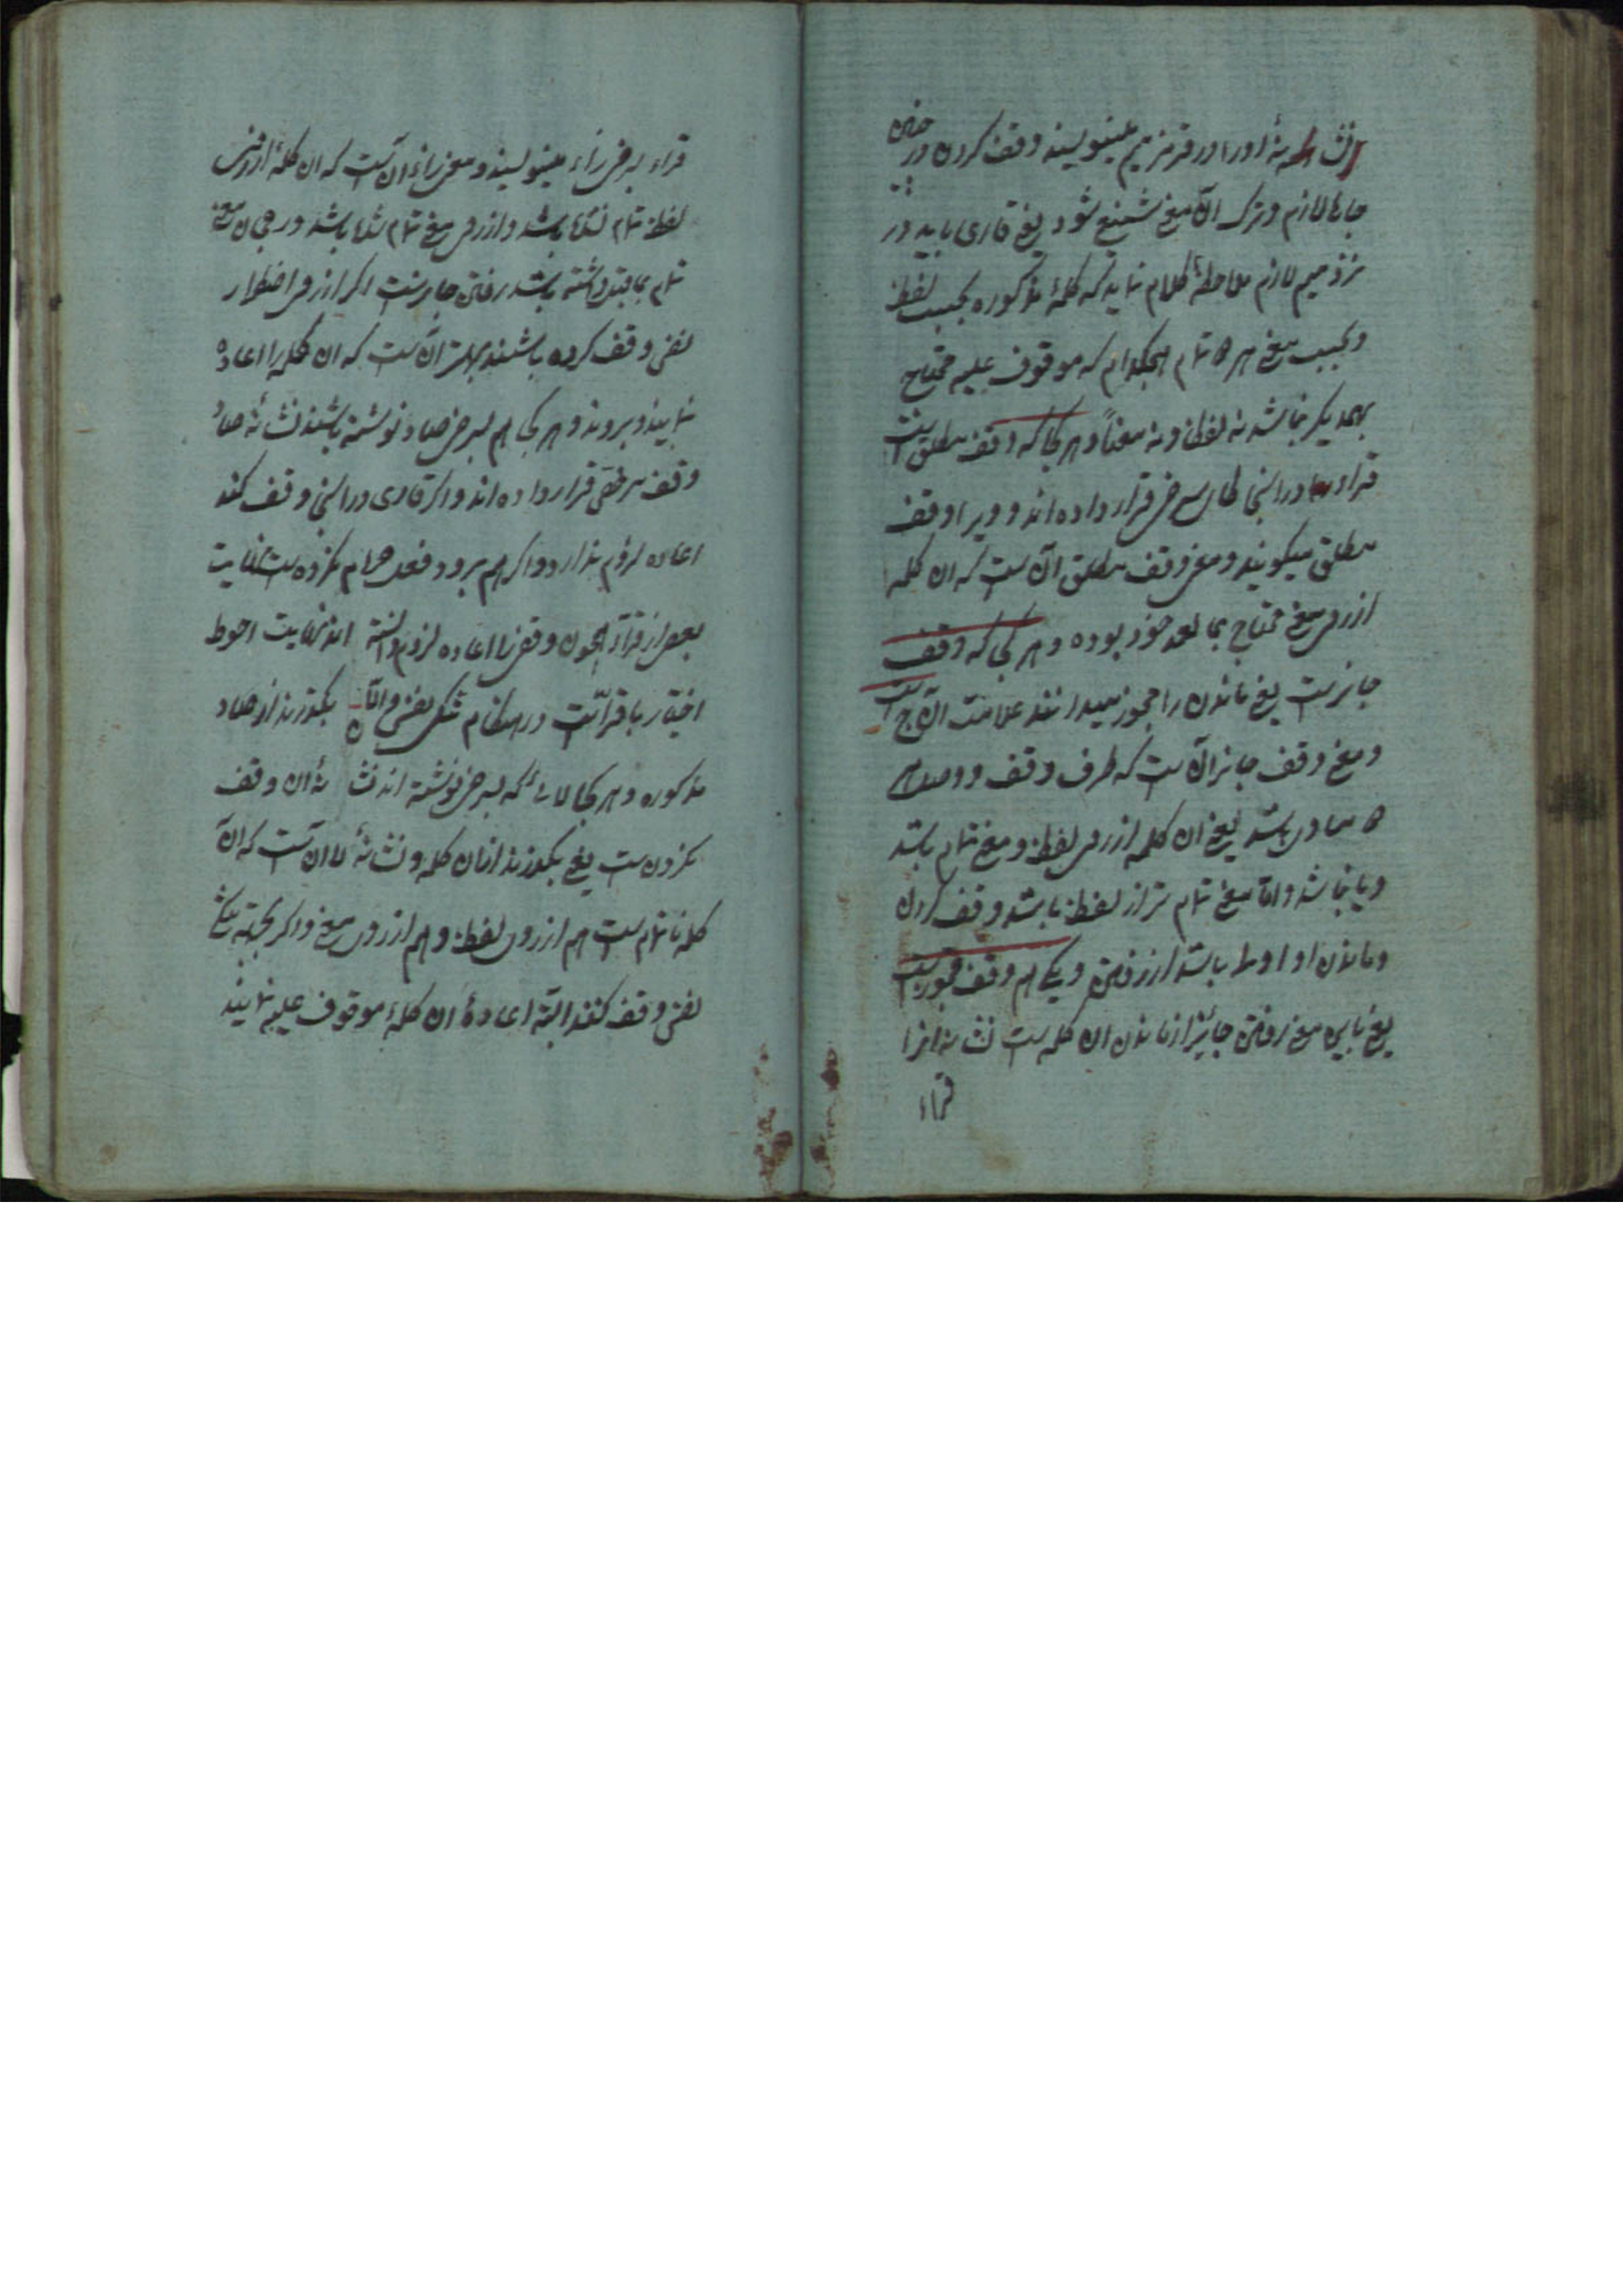 نشانهٔ او را در قرمز میم مینویسند وقف کردن در چنین
جاها لازم و ترک آن معنی شنیع شود یعنی قاری باید در
نزد میم لازم ملاحظهٔ کلام نماید که کلمهٔ مذکوره بحسب لفظ
و بحسب معنی هر دو تمام هیچکدام که موقوف علیه محتاج
بهمدیگر نباشد نه لفظاً و نه معناً و هر کجا که وقف مطلق است
قراء در اینجا طای سرخی قرار داده اند و ویرا وقف
مطلق میگویند و معنی وقف مطلق آن است که ان کلمه
از روی معنی محتاج بما بعد خود بوده و هر کجا که وقف
جایز است یعنی ماندن را مجوز میدانند علامت آن ج است
و معنی وقف جایز آن است که طرف وقف و وصل
مساوی باشد یعنی ان کلمه از روی لفظ و معنی تمام باشد
و یا نباشد و اما معنی تمام تر از لفظ باشد وقف کردن
و ماندن او اوسط باشد از رفتن و یکی هم وقف مجوز است
یعنی باین معنی رفتن جایز از ماندن ان کلمه است نشانه انرا
قراء
قراء بسرخی زاء مینویسند و معنی زاء آن است که ان کلمه از روی
لفظ تمام نشده باشد و از روی معنی تمام شده باشد در میان معنی
تمام بماقبل گشته باشد رفتن جایز است اگر از روی اضطرار
نفس وقف کرده باشند بهتر آن است که ان کلمه را اعاده
نمایند و بروند و هر کجا هم بسرخی صاد نوشته باشند نشانهٔ صاد
وقف مرخص قرار داده اند و اگر قاری در اینجا وقف کند
اعاده لزوم ندارد و اگر هم برود فعل حرام نکرده است نهایت
بعض از قراء همچون وقف را اعاده لزوم دانسته اند نهایت احوط
اختیار با قرائت در هنگام تنگی نفس و الّا بگذرند از صاد
مذکوره و هر کجا لائی که بسرخی نوشته اند نشانهٔ ان وقف
نکردن است یعنی بگذرند از ان کلمه و نشانهٔ لا ان است که ان
کلمه ناتمام است هم از روی لفظ و هم از روی معنی و اگر بجهت تنگی
نفس وقف کنند البته اعادهٔ ان کلمهٔ موقوف علیه نمایند